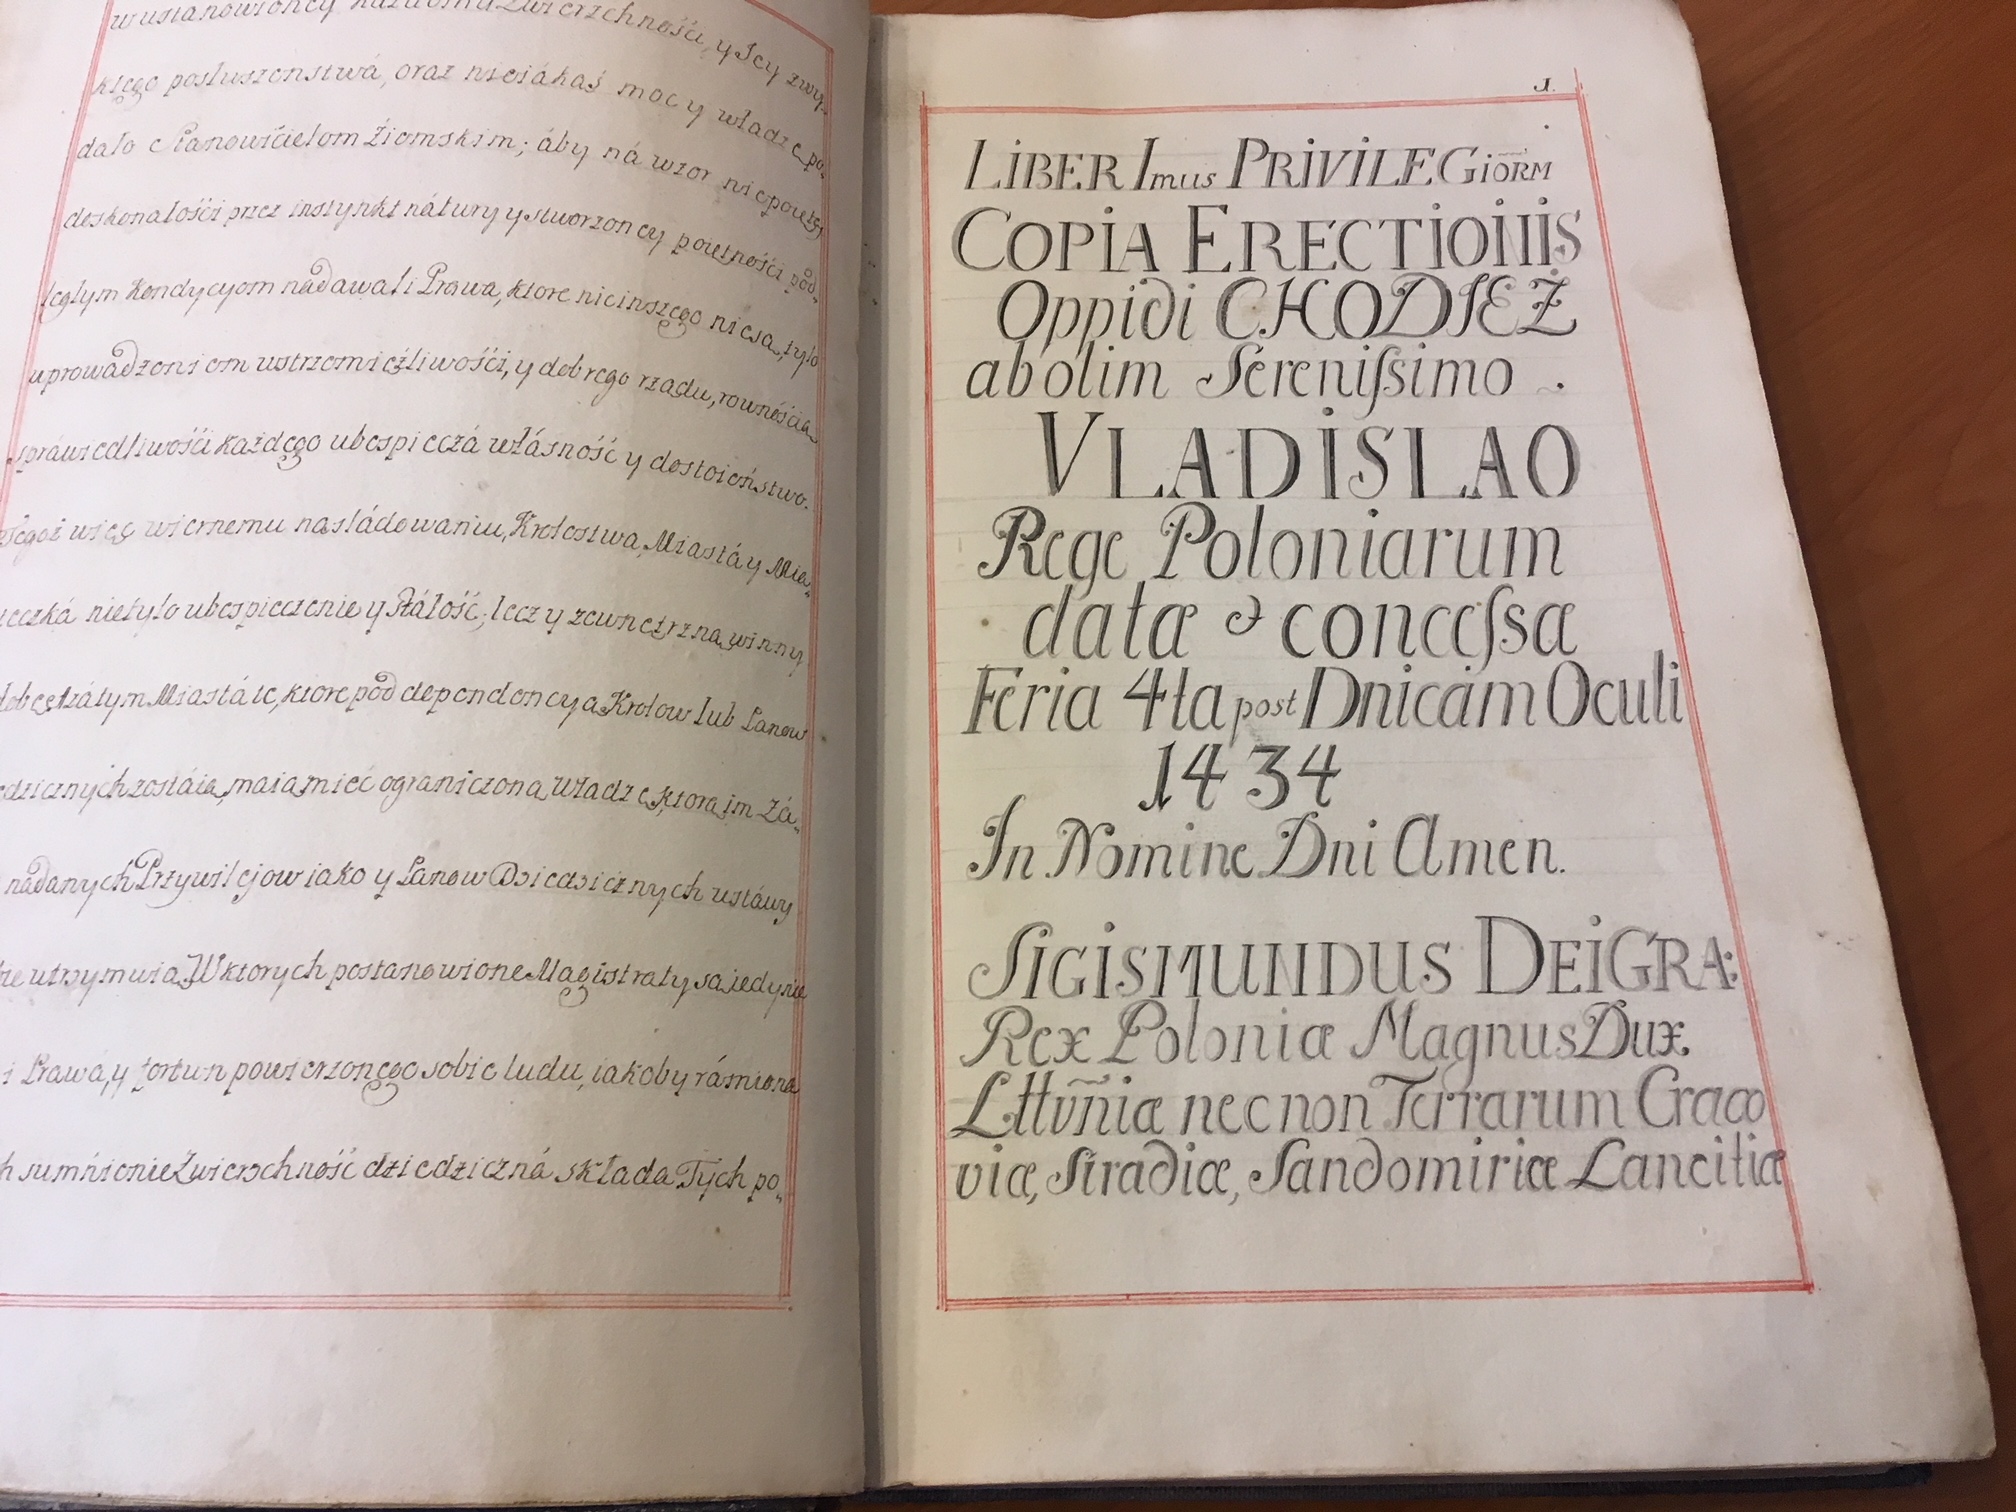 wustanowioney każdemu Zwierzchności, y Jey zwy-
kłego posłuszenstwá, oraz nieiákaś moc y władzę po-
dało Stanowićielom Źiemskim; áby ná wzor niepoięty
doskonałośći przez instynkt nátury y stworzoney poiętnośći pod-
ległym Kondycyom nadawali Prawa, ktore nic inszego nie są, tylo
uprowadzeniem wstrzemięźliwośći, y dobrego rządu, rownośćią
spráwiedliwośći każdego ubespieczá włásność y dostoieństwo.
Tegoż więc wiernemu násládowaniu, Krolestwa, Miastá y Mia-
steczká nietylo ubespieczenie y Stáłość; lecz y zewnętrzną winny
Miastá te, ktore pod dependencyą Krolow lub Panow
dzicznych zostáią, maią mieć ograniczoną Władzę, ktorą im Zá-
nadanych Przywilejow iako y Panow Dziedzicznych ustáwy
utrzymuią. W ktorych postanowione Magistraty są jedynie
i Prawá, y fortun powierzonego sobie ludu, iakoby rámiona
h sumńienie Zwierzchność dziedziczná składa Tych po-
1.
LIBER Imus PRIVILEGIORM
COPIA ERECTIONIS
Oppidi CHODZIEŻ
abolim Sereniſsimo
VLADISLAO
Rege Poloniarum
datæ & conceſsæ
Feria 4ta post Dnicam Oculi
1434
In Nomine Dni Amen.
SIGISMUNDUS DEI GRA:
Rex Poloniæ Magnus Dux
Lttvniæ nec non Terrarum Craco
viæ, Siradiæ, Sandomiriæ Lancitiæ